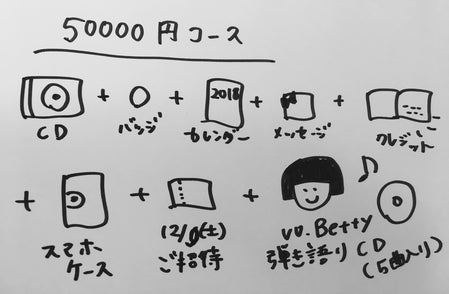 50000円コース
CD + バッジ + 2018 カレンダー + メッセージ + クレジット
+ スマホケース + 12/9(土)ご招待 + vo.Betty弾き語りCD(5曲入り)